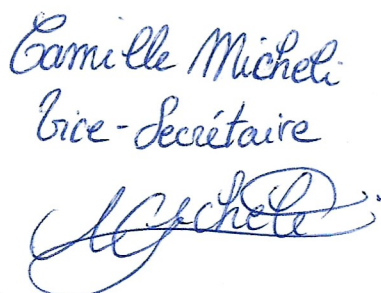 Camille Micheli
Vice-Secrétaire